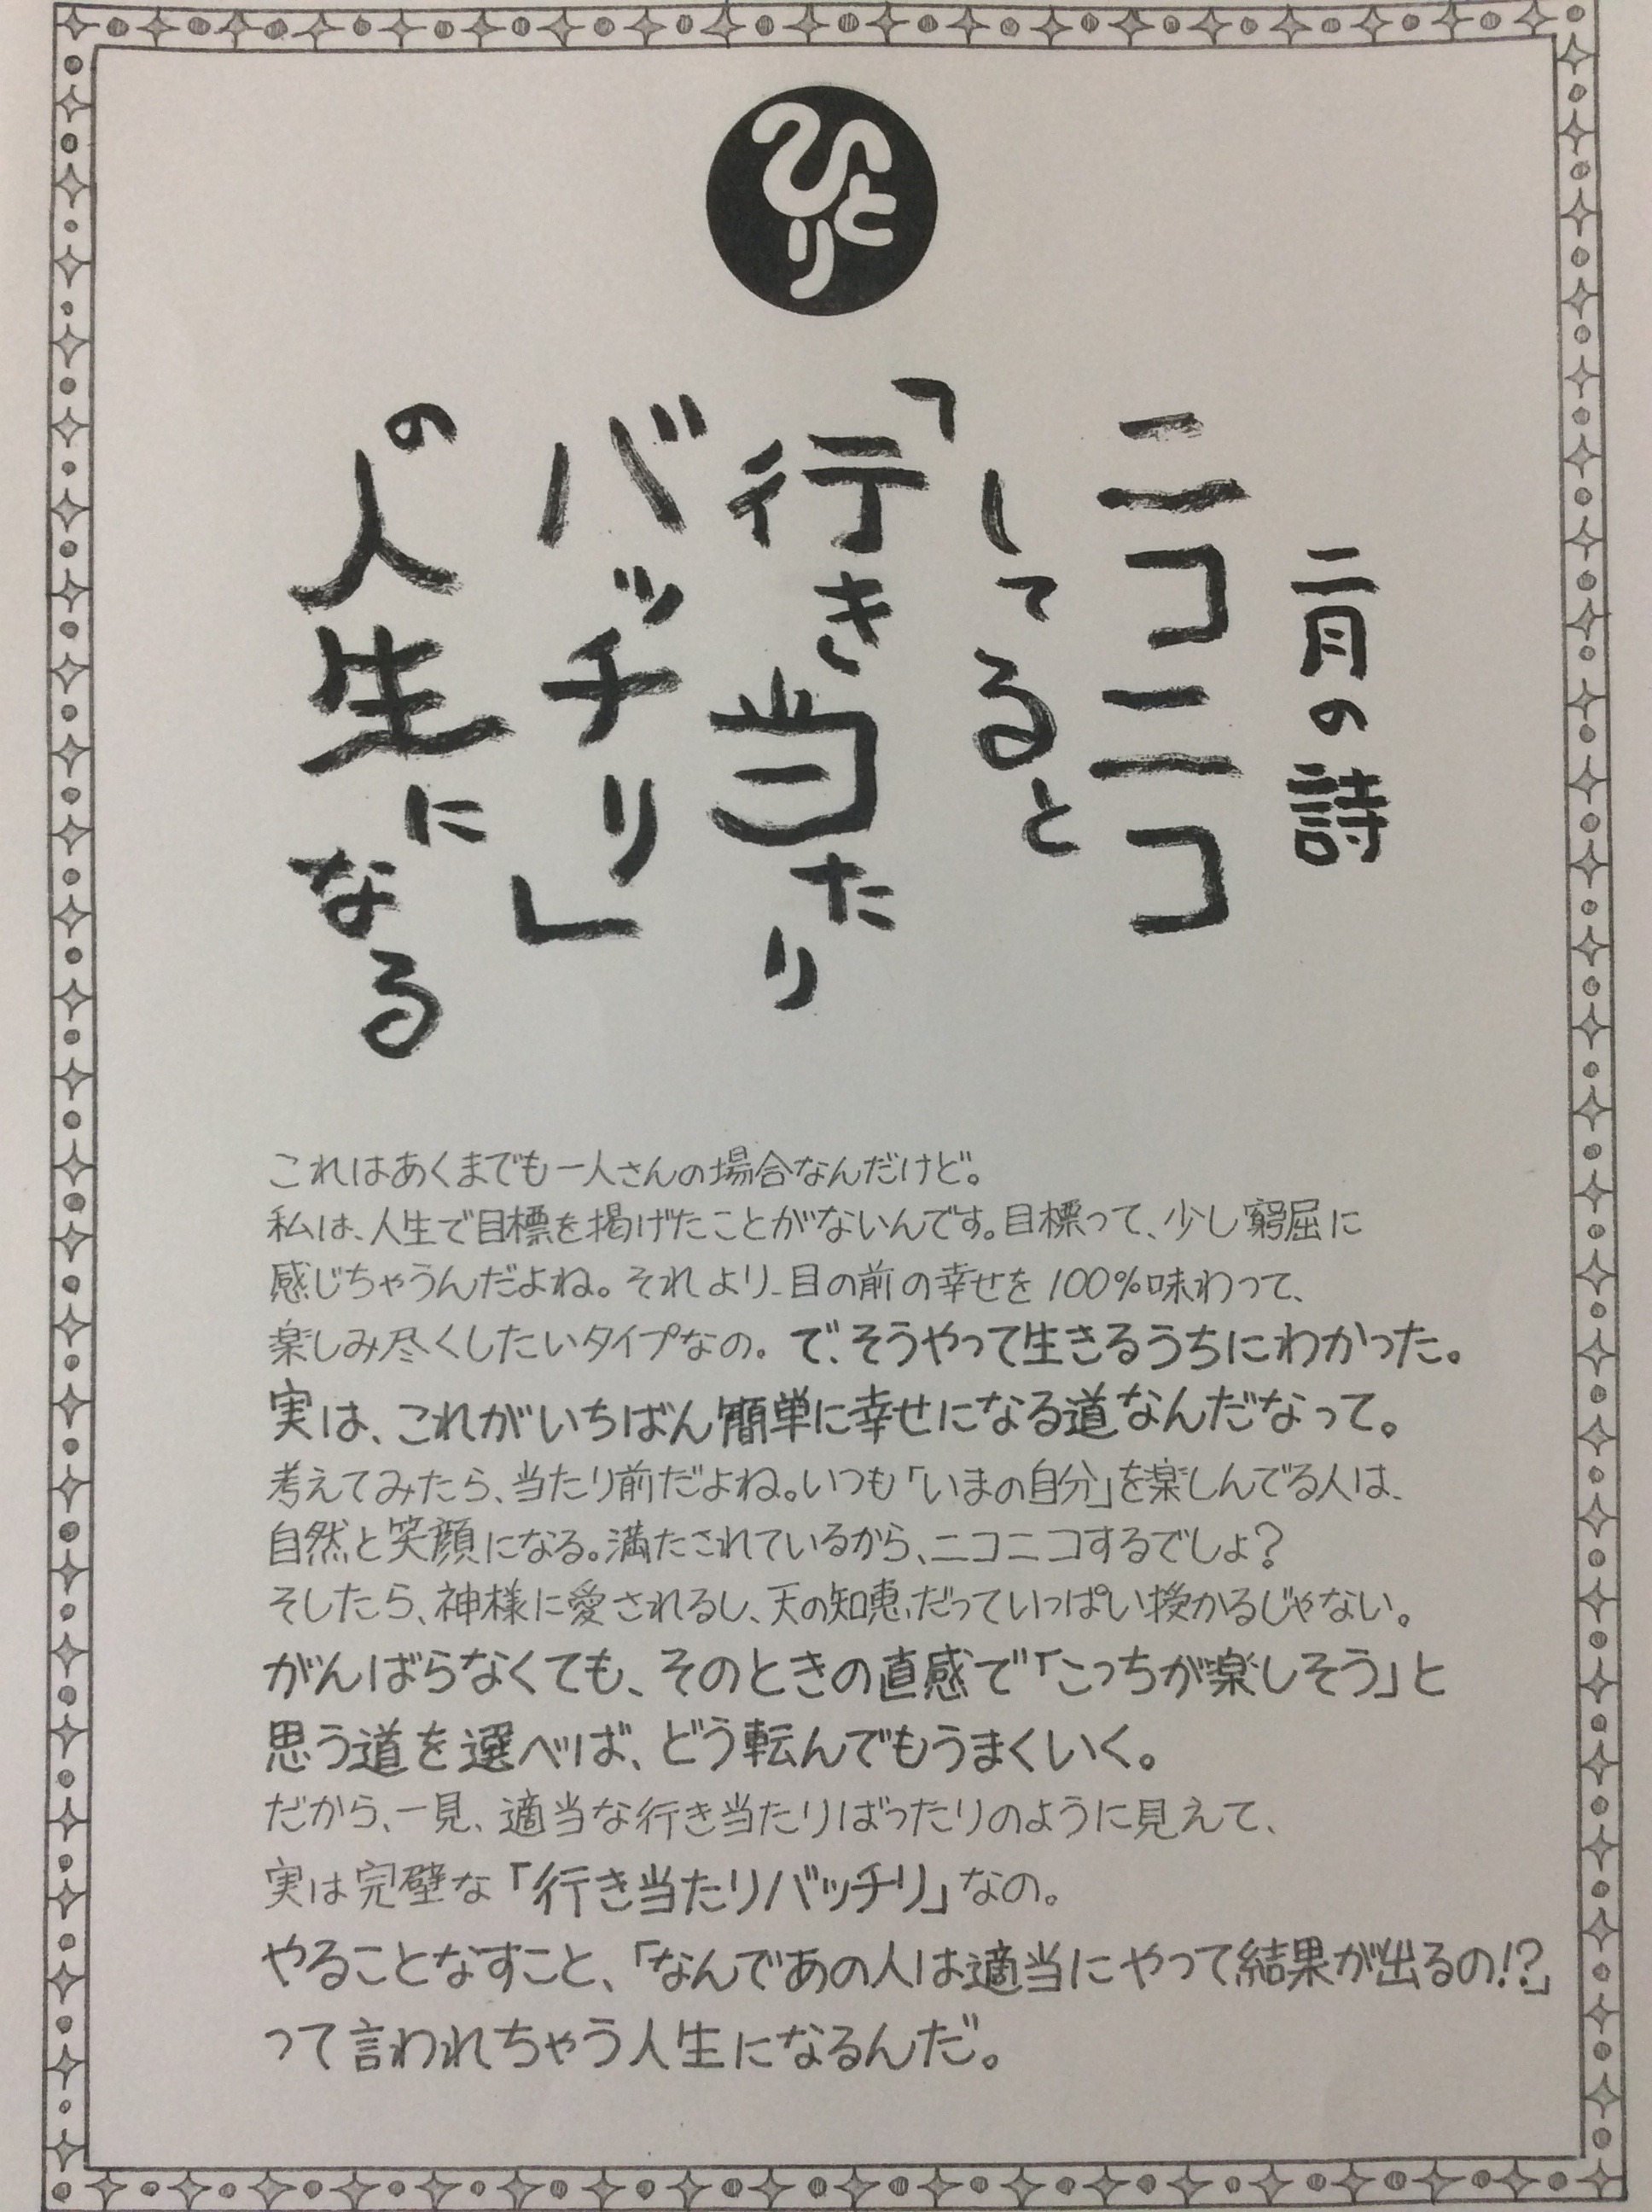 ひとり
二月の詩
ニコニコ
してると
「行き当たり
バッチリ」
の人生に
なる
これはあくまでも一人さんの場合なんだけど。
私は、人生で目標を掲げたことがないんです。目標って、少し窮屈に
感じちゃうんだよね。それより、目の前の幸せを100%味わって、
楽しみ尽くしたいタイプなの。で、そうやって生きるうちにわかった。
実は、これがいちばん簡単に幸せになる道なんだなって。
考えてみたら、当たり前だよね。いつも「いまの自分」を楽しんでる人は、
自然と笑顔になる。満たされているから、ニコニコするでしょ?
そしたら、神様に愛されるし、天の知恵だっていっぱい授かるじゃない。
がんばらなくても、そのときの直感で「こっちが楽しそう」と
思う道を選べば、どう転んでもうまくいく。
だから、一見、適当な行き当たりばったりのように見えて、
実は完璧な「行き当たりバッチリ」なの。
やることなすこと、「なんであの人は適当にやって結果が出るの!?」
って言われちゃう人生になるんだ。